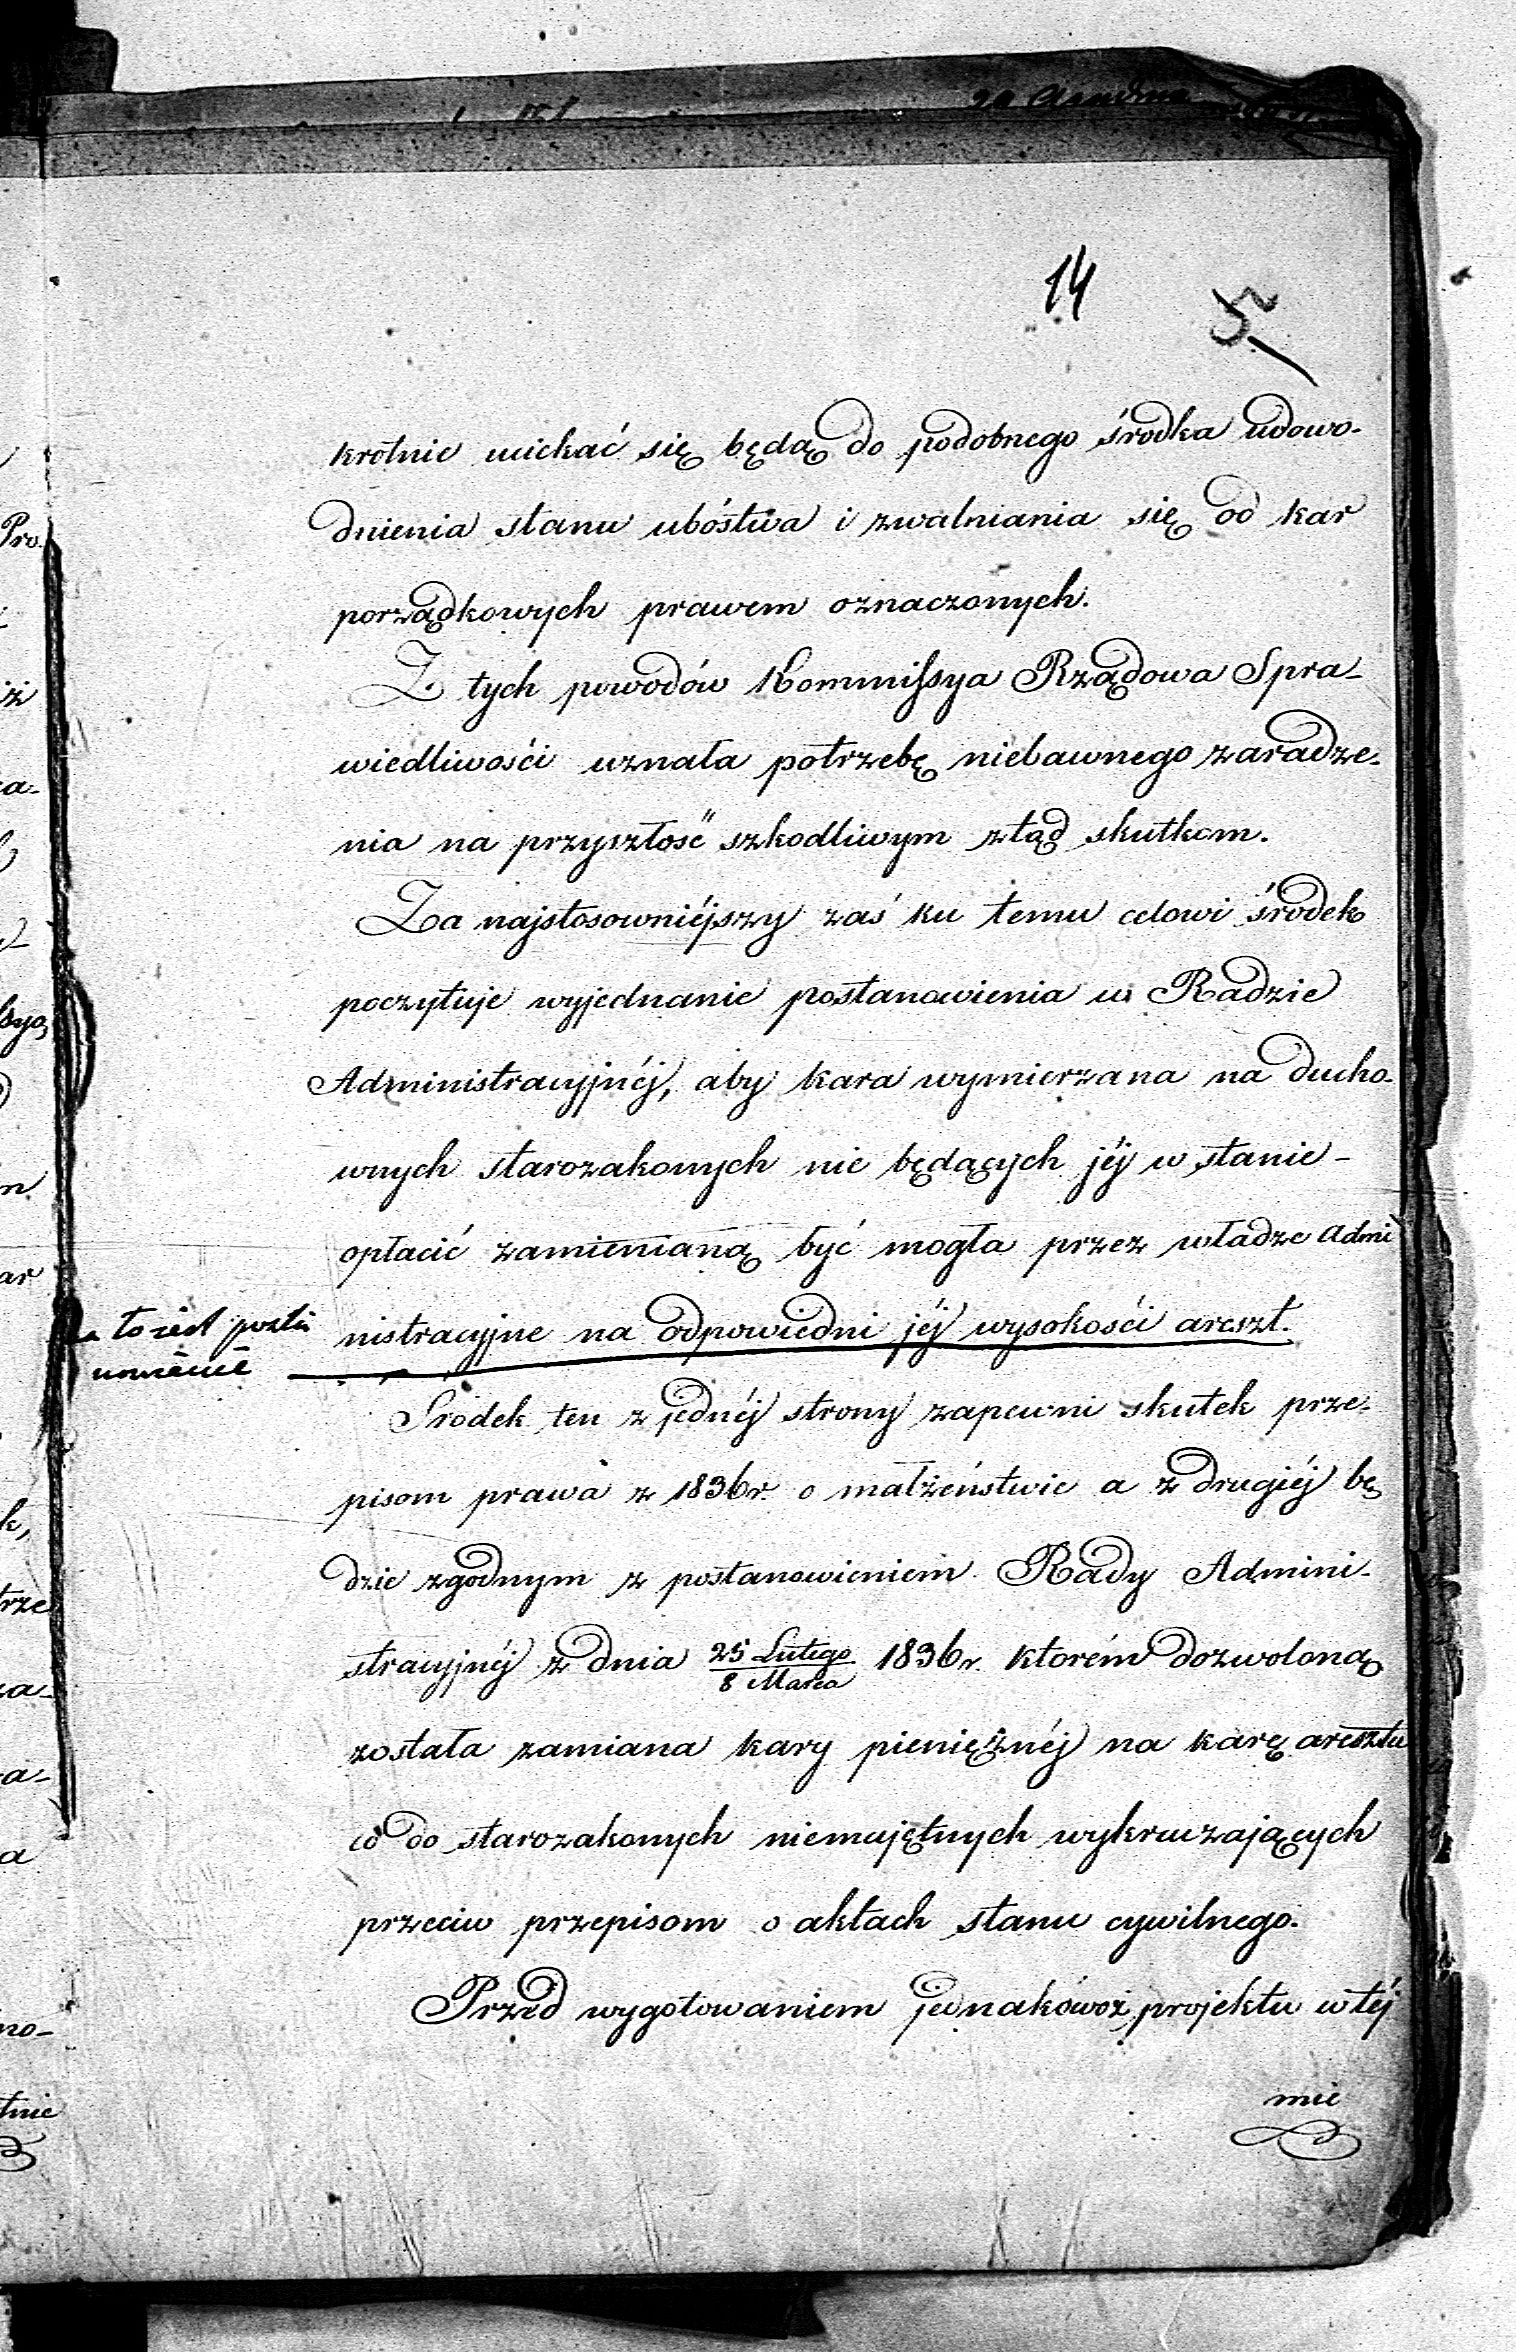 14
5
krotnie uciekać się będą do podobnego środka udowo-
dnienia stanu ubóstwa i zwalniania się od kar
porządkowych prawem oznaczonych.
Z tych powodów Kommissya Rządowa Spra-
wiedliwości uznała potrzebę niebawnego zaradze-
nia na przyszłość szkodliwym ztąd skutkom.
Za najstosowniéjszy zaś ku temu celowi środek
poczytuje wyjednanie postanowienia w Radzie
Administracyjnéj, aby kara wymierzana na ducho-
wnych starozakonych nie będących jéj w stanie
opłacić zamienianą być mogła przez władze Admi
nistracyjne na odpowiedni jéj wysokości areszt.
to jest
Srodek ten z jednéj strony zapewni skutek prze-
pisom prawa z 1836 r. o małżeństwie a z drugiéj bę
dzie zgodnym z postanowieniem Rady Admini-
stracyjnéj z dnia 25 Lutego / 8 Marca 1836 r. ktorém dozwoloną
została zamiana kary pieniężnéj na karę aresztu
co do starozakonych niemajętnych wykraczających
przeciw przepisom o aktach stanu cywilnego.
Przed wygotowaniem jednakowoż projektu w téj
mie